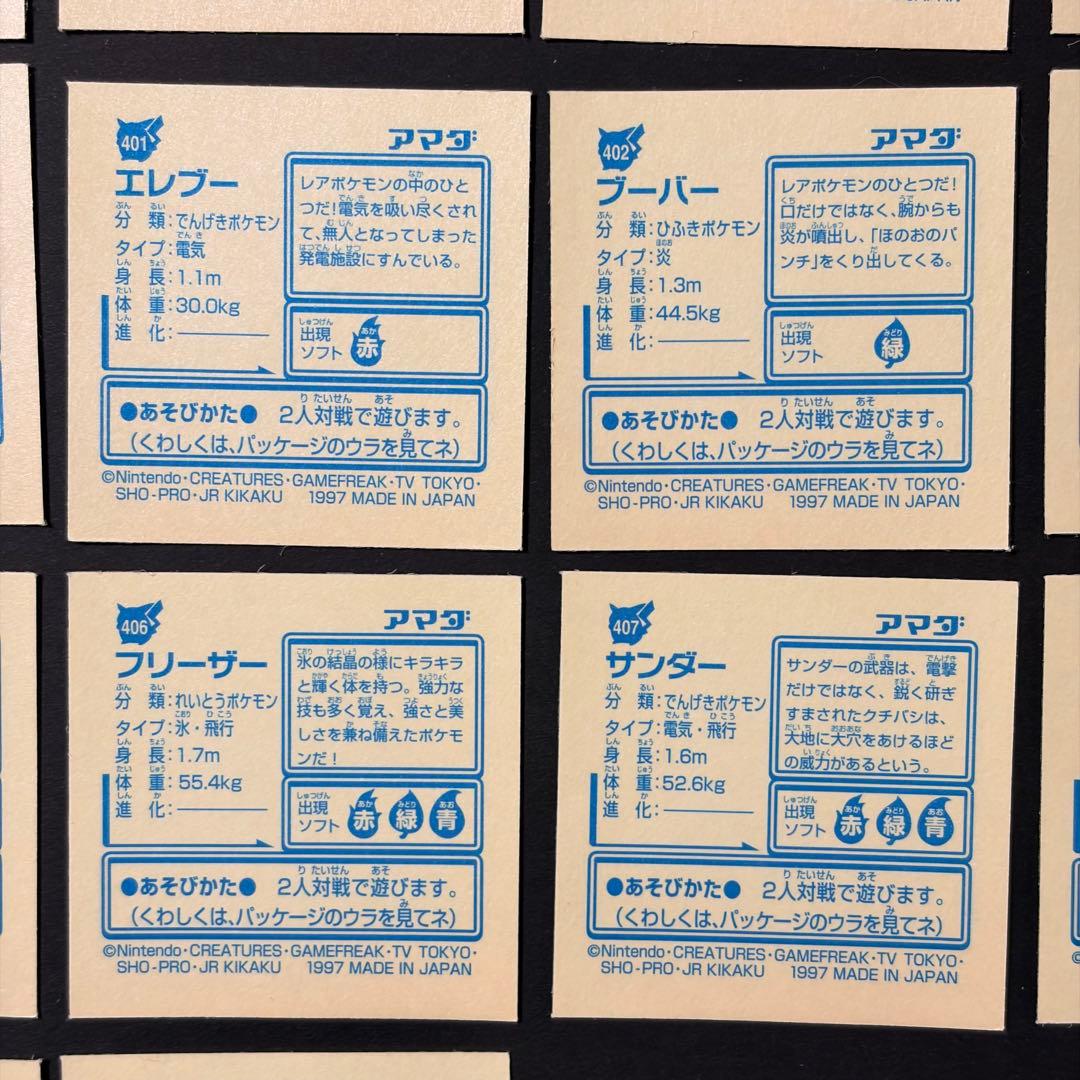 401
アマダ
エレブー
分類:でんげきポケモン
タイプ:電気
身長:1.1m
体重:30.0kg
進化:――――
レアポケモンの中のひと
つだ!電気を吸い尽くされ
て、無人となってしまった
発電施設にすんでいる。
出現
ソフト
赤
●あそびかた● 2人対戦で遊びます。
(くわしくは、パッケージのウラを見てネ)
©Nintendo・CREATURES・GAMEFREAK・TV TOKYO・
SHO-PRO・JR KIKAKU 1997 MADE IN JAPAN
402
アマダ
ブーバー
分類:ひふきポケモン
タイプ:炎
身長:1.3m
体重:44.5kg
進化:――――
レアポケモンのひとつだ!
口だけではなく、腕からも
炎が噴出し、「ほのおのパ
ンチ」をくり出してくる。
出現
ソフト
緑
●あそびかた● 2人対戦で遊びます。
(くわしくは、パッケージのウラを見てネ)
©Nintendo・CREATURES・GAMEFREAK・TV TOKYO・
SHO-PRO・JR KIKAKU 1997 MADE IN JAPAN
406
アマダ
フリーザー
分類:れいとうポケモン
タイプ:氷・飛行
身長:1.7m
体重:55.4kg
進化:――――
氷の結晶の様にキラキラ
と輝く体を持つ。強力な
技も多く覚え、強さと美
しさを兼ね備えたポケモ
ンだ!
出現
ソフト
赤 緑 青
●あそびかた● 2人対戦で遊びます。
(くわしくは、パッケージのウラを見てネ)
©Nintendo・CREATURES・GAMEFREAK・TV TOKYO・
SHO-PRO・JR KIKAKU 1997 MADE IN JAPAN
407
アマダ
サンダー
分類:でんげきポケモン
タイプ:電気・飛行
身長:1.6m
体重:52.6kg
進化:――――
サンダーの武器は、電撃
だけではなく、鋭く研ぎ
すまされたクチバシは、
大地に大穴をあけるほど
の威力があるという。
出現
ソフト
赤 緑 青
●あそびかた● 2人対戦で遊びます。
(くわしくは、パッケージのウラを見てネ)
©Nintendo・CREATURES・GAMEFREAK・TV TOKYO・
SHO-PRO・JR KIKAKU 1997 MADE IN JAPAN